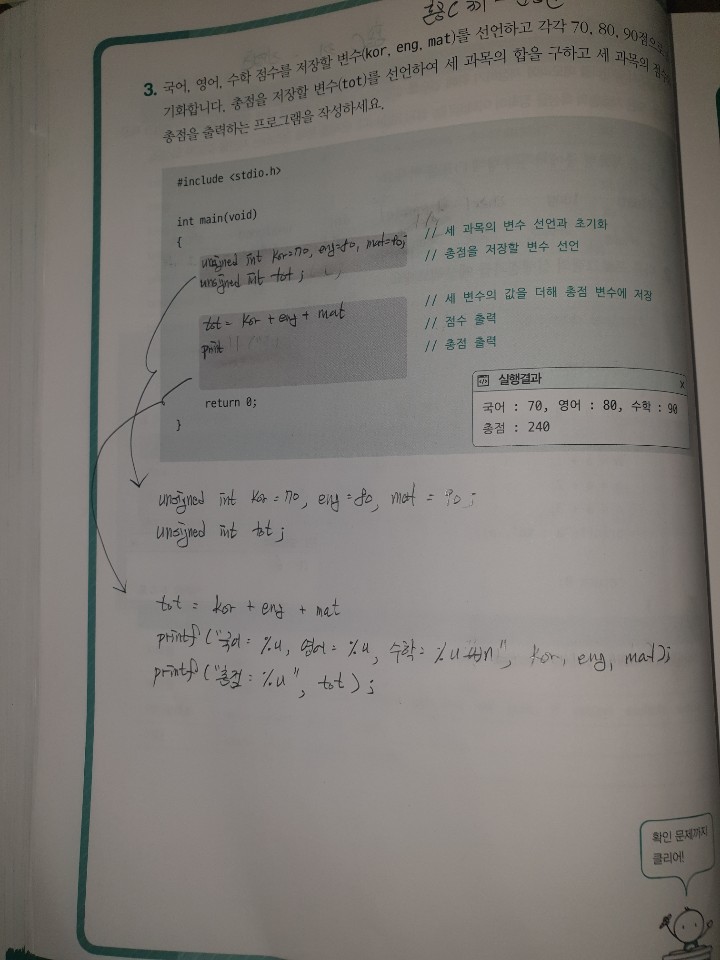 3. 국어, 영어, 수학 점수를 저장할 변수(kor, eng, mat)를 선언하고 각각 70, 80, 90점으로
기화합니다. 총점을 저장할 변수(tot)를 선언하여 세 과목의 합을 구하고 세 과목의 점수
총점을 출력하는 프로그램을 작성하세요.
#include <stdio.h>
int main(void)
{
unsigned int kor=70, eng=80, mat=90; // 세 과목의 변수 선언과 초기화
unsigned int tot; // 총점을 저장할 변수 선언
tot = kor + eng + mat // 세 변수의 값을 더해 총점 변수에 저장
print // 점수 출력
// 총점 출력
return 0;
}
실행결과 x
국어 : 70, 영어 : 80, 수학 : 90
총점 : 240
unsigned int kor = 70, eng = 80, mat = 90;
unsigned int tot;
tot = kor + eng + mat
printf("국어 : %u, 영어 : %u, 수학 : %u \n", kor, eng, mat);
printf("총점 : %u", tot);
확인 문제까지
클리어!